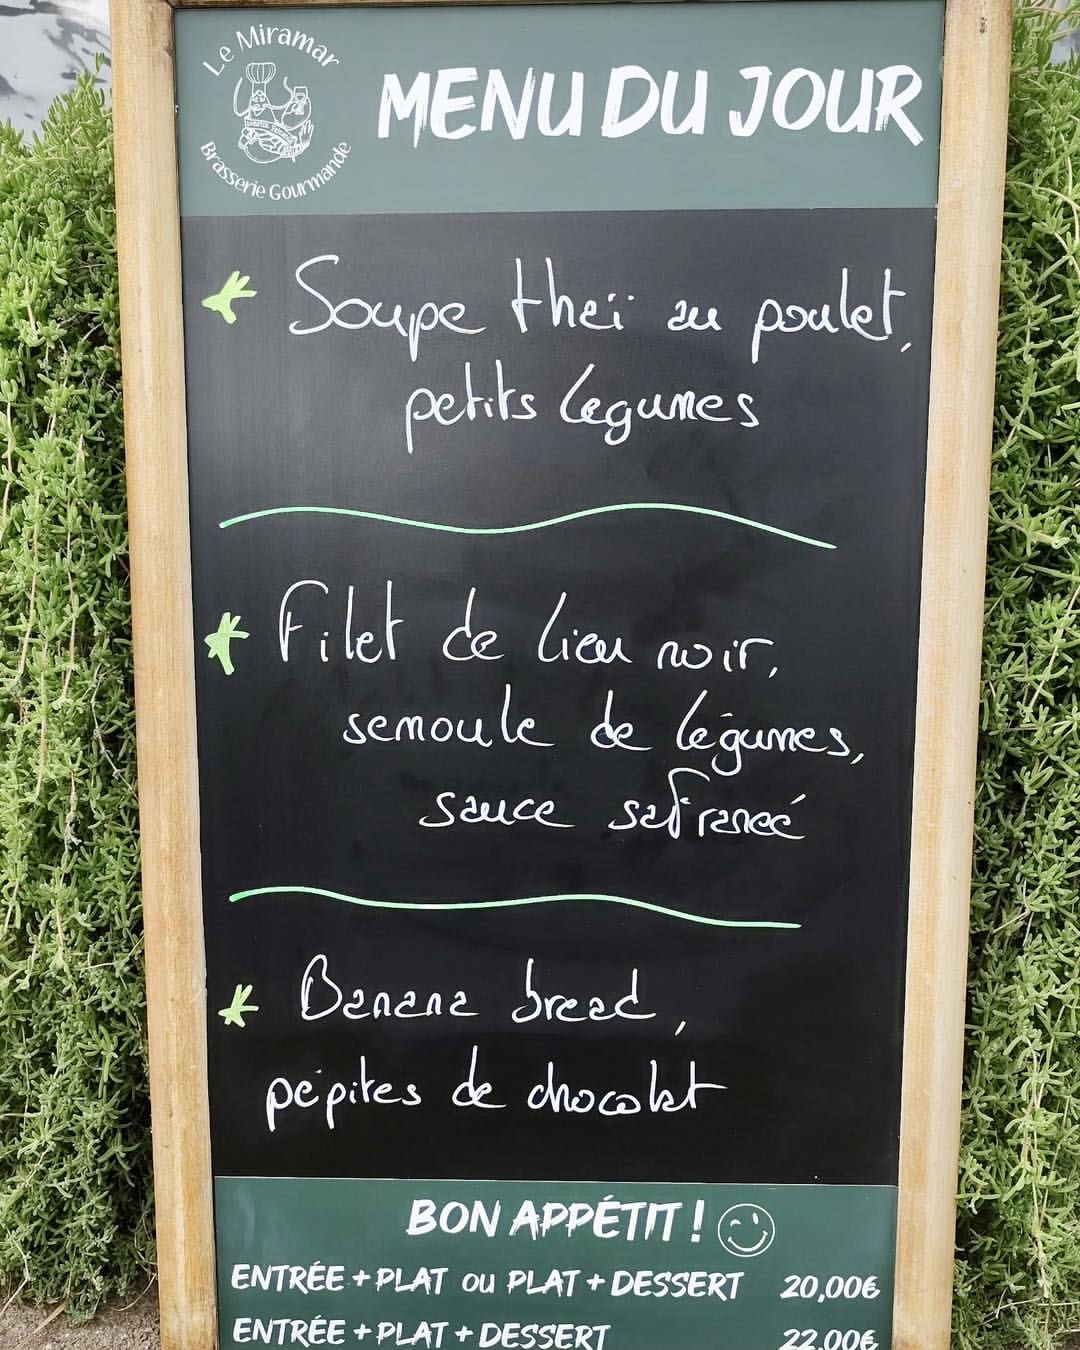 Le Miramar
Brasserie Gourmande
MENU DU JOUR
Soupe thaï au poulet,
petits légumes
Filet de lieu noir,
semoule de légumes,
sauce safranée
Banana bread,
pépites de chocolat
BON APPÉTIT !
ENTRÉE + PLAT OU PLAT + DESSERT 20,00€
ENTRÉE + PLAT + DESSERT 22,00€